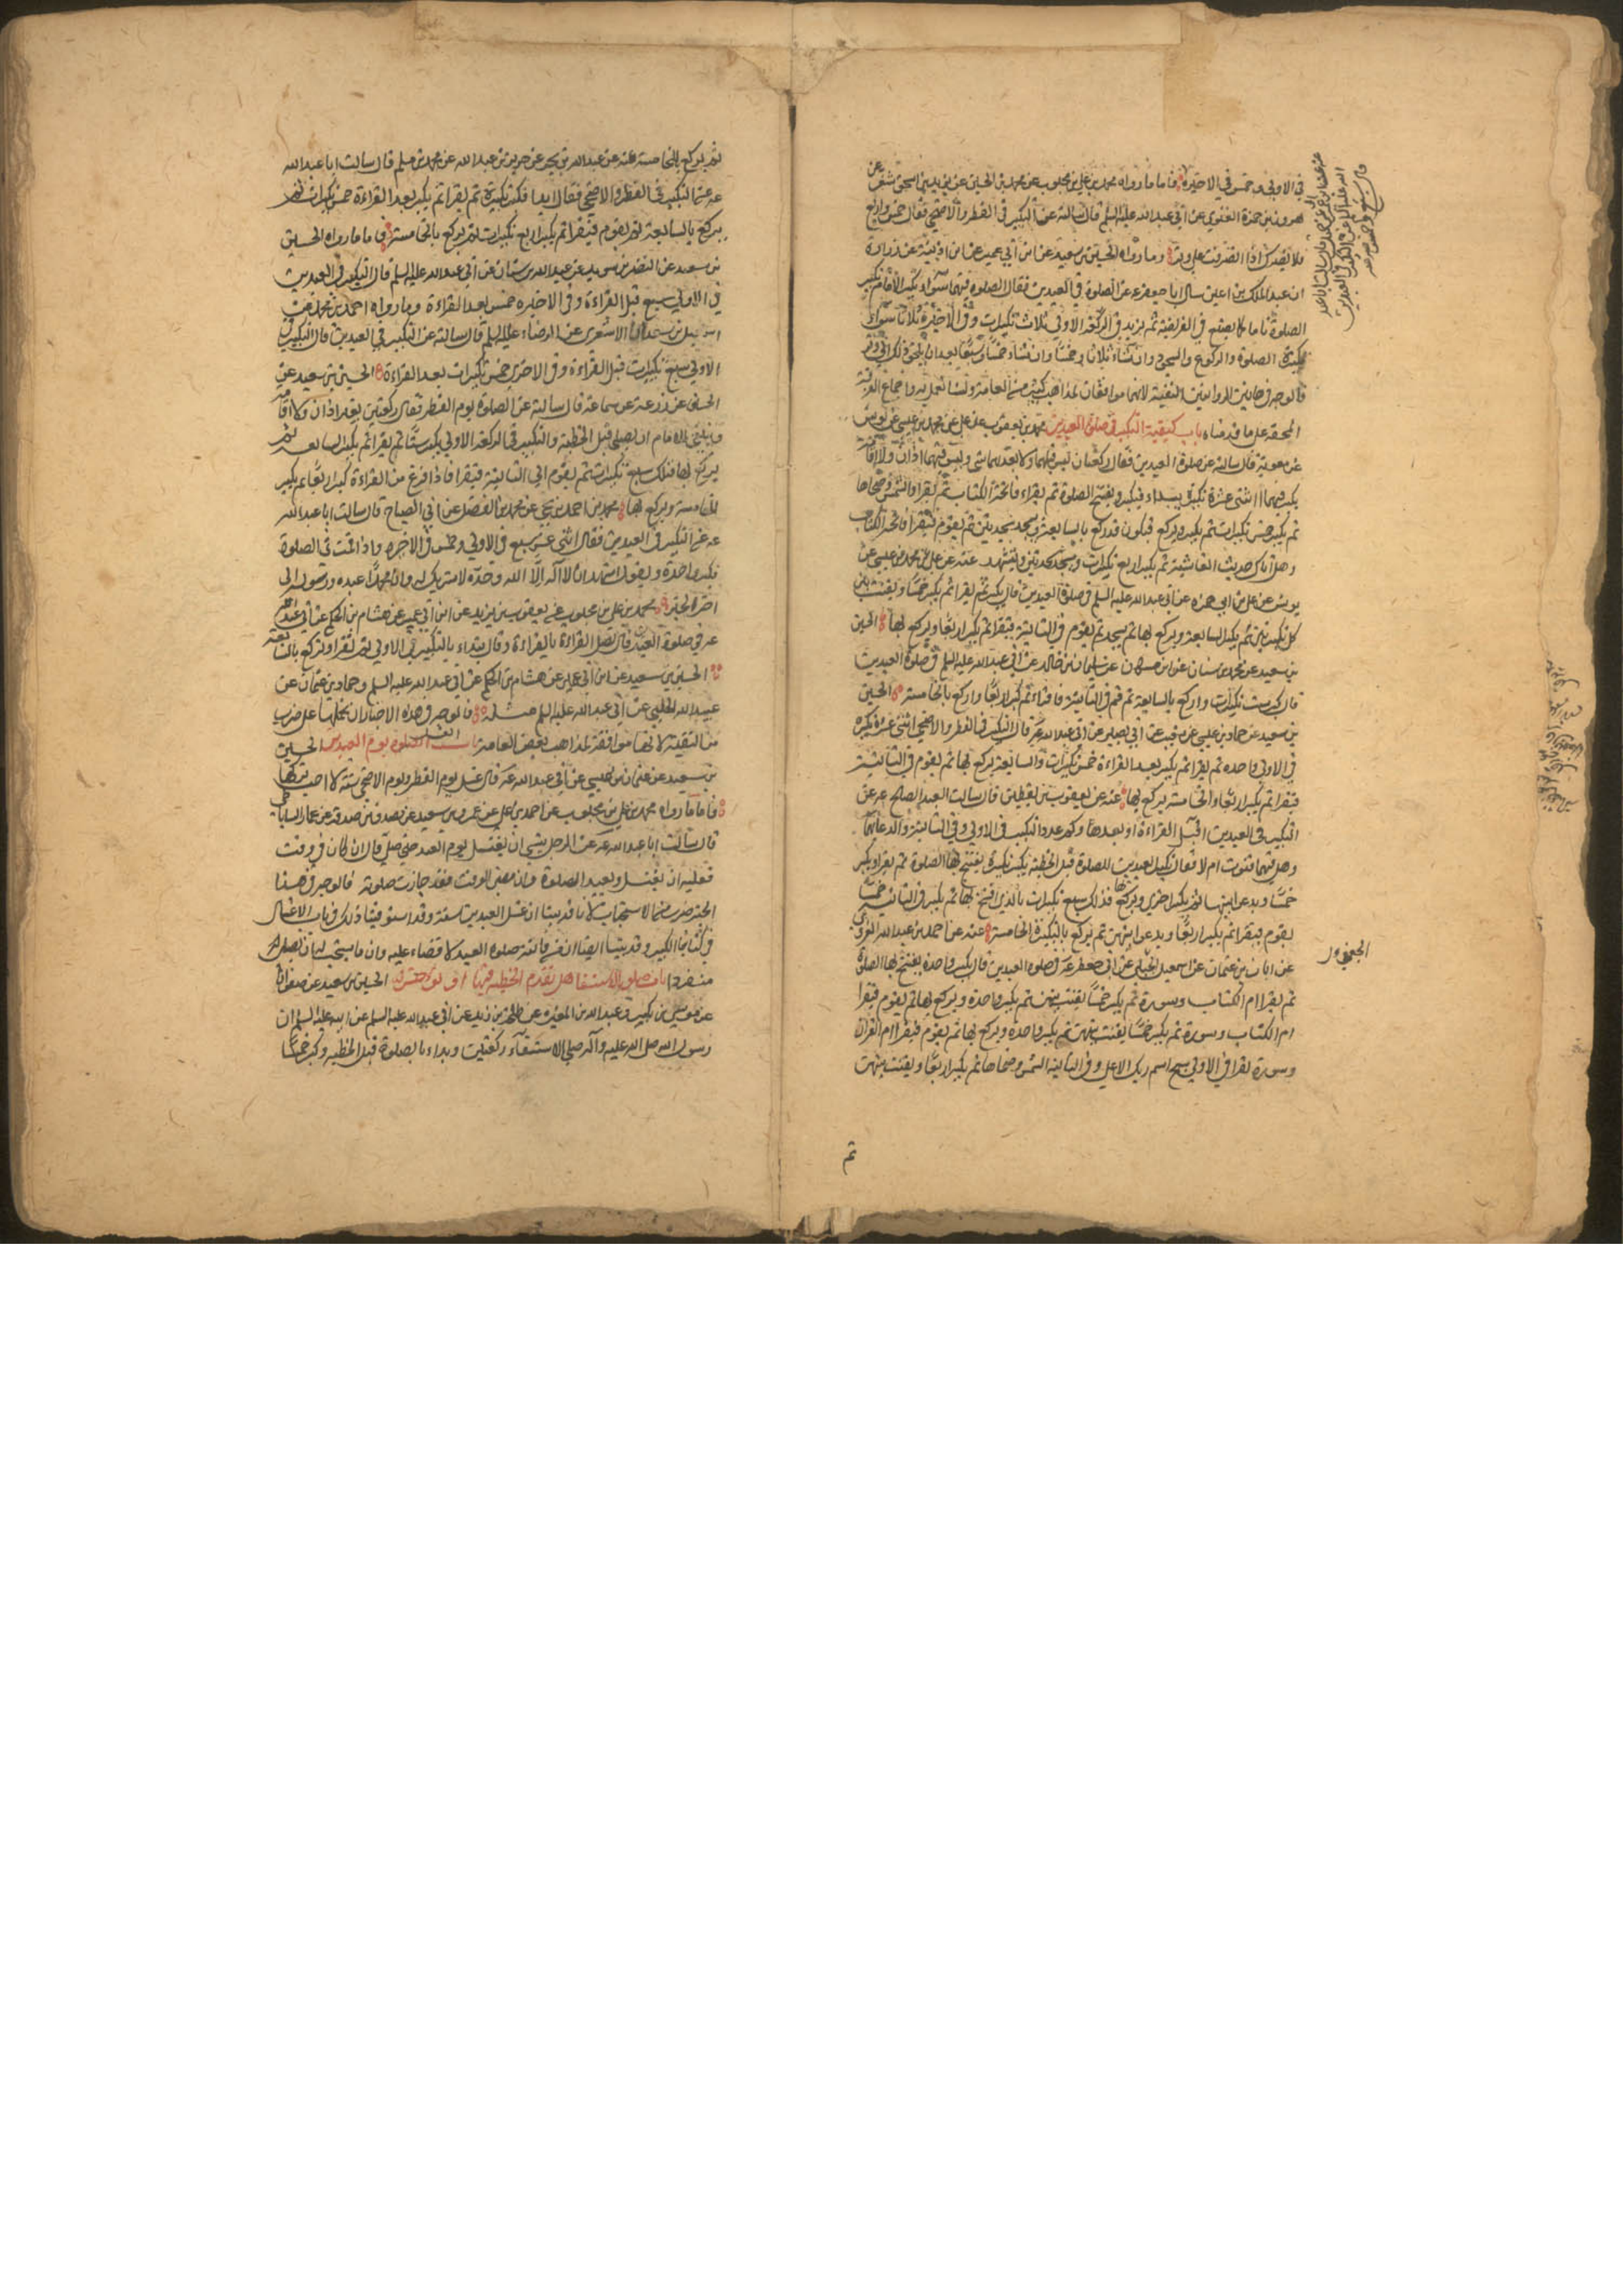 في الاولى وخمس في الاخيرة فاما ما رواه محمد بن علي بن محبوب عن محمد بن الحسين عن يزيد بن اسحق شعر عن
هرون بن حمزة الغنوي عن ابي عبد الله عليه السلم قال سالته عن التكبير في الفطر والاضحى فقال خمس واربع
فلا يضرك اذا انصرفت على وتر وما رواه الحسين بن سعيد عن ابن ابي عمير عن ابن اذينة عن زرارة
ان عبد الملك بن اعين سال ابا جعفر ع عن الصلوة في العيدين فقال الصلوة فيهما سواء يكبر الامام تكبير
الصلوة قائما كما يصنع في الفريضة ثم يزيد في الركعة الاولى ثلاث تكبيرات وفي الاخيرة ثلاثا سوى
تكبيرة الصلوة والركوع والسجود وان شاء ثلاثا وخمسا وان شاء خمسا وسبعا بعد ان يلحق ذلك الى وتر
فالوجه في هاتين الروايتين التقية لانهما موافقان لمذاهب كثير من العامة ولسنا نعمل به واجماع الفرقة
المحقة على ما قدمناه باب كيفية التكبير في صلوة العيدين محمد بن يعقوب عن علي عن محمد بن عيسى عن يونس
عن معوية قال سالته عن صلوة العيدين فقال ركعتان ليس قبلهما ولا بعدهما شيء وليس فيهما اذان ولا اقامة
يكبر فيهما اثنتى عشرة تكبيرة يبداء فيكبر ويفتتح الصلوة ثم يقراء فاتحة الكتاب ثم يقرا والشمس وضحاها
ثم يكبر خمس تكبيرات ثم يكبر ويركع فيكون قد ركع بالسابعة ويسجد سجدتين ثم يقوم فيقرا فاتحة الكتاب
وهل اتاك حديث الغاشية ثم يكبر اربع تكبيرات ويسجد سجدتين ويتشهد عنه عن علي عن محمد بن عيسى عن
يونس عن علي بن ابي حمزه عن ابي عبد الله عليه السلم في صلوة العيدين قال يكبر ثم يقرا ثم يكبر خمسا ويقنت بين
كل تكبيرتين ثم يكبر السابعة ويركع بها ثم يسجد ثم يقوم في الثانية فيقرا ثم يكبر اربعا ويركع بها الحسين
بن سعيد عن محمد بن سنان عن ابن مسكان عن سليمان بن خالد عن ابي عبد الله عليه السلم في صلوة العيدين
قال كبر ست تكبيرات واركع بالسابعة ثم قم في الثانية فاقراء ثم كبر اربعا واركع بالخامسة الحسين
بن سعيد عن حماد بن عيسى عن شعيب عن ابي بصير عن ابي عبد الله ع قال التكبير في الفطر والاضحى اثنتى عشرة تكبيرة
في الاولى واحده ثم يقرا ثم يكبر بعد القراءة خمس تكبيرات والسابعة يركع بها ثم يقوم في الثانية
فيقرا ثم يكبر اربعا والخامسة يركع بها عنه عن يعقوب بن يقطين قال سالت العبد الصالح ع عن
التكبير في العيدين اقبل القراءة او بعدها وكم عدد التكبير في الاولى وفي الثانية والدعاء بينهما
وهل فيهما قنوت ام لا فقال تكبير العيدين للصلوة قبل الخطبة يكبر تكبيرة يفتتح بها الصلوة ثم يقرا ويكبر
خمسا ويدعو بينها ثم يكبر اخرى ويركع بها فذلك سبع تكبيرات بالذي افتتح بها ثم يكبر في الثانية خمسا
يقوم فيقرا ثم يكبر اربعا ويدعو بينهن ثم يركع بالتكبيرة الخامسة عنه عن احمد بن عبد الله القروي
عن ابان بن عثمان عن اسمعيل الجبلي عن ابي جعفر ع في صلوة العيدين قال يكبر واحدة يفتتح بها الصلوة
ثم يقرا ام الكتاب وسورة ثم يكبر خمسا يقنت بينهن ثم يكبر واحدة ويركع بها ثم يقوم فيقرا
ام الكتاب وسورة ثم يكبر خمسا يقنت بينهن ثم يكبر واحدة ويركع بها ثم يقوم فيقرا ام القران
وسورة يقرا في الاولى سبح اسم ربك الاعلى وفي الثانية الشمس وضحاها ثم يكبر اربعا ويقنت بينهن
ثم
ثم يركع بالخامسة عنه عن عبد الله بن بحر عن حريز بن عبد الله عن محمد بن مسلم قال سالت ابا عبد الله
ع عن التكبير في الفطر والاضحى فقال ابدا فكبر تكبيرة ثم يقرا ثم يكبر بعد القراءة خمس تكبيرات ثم
يركع بالسابعة ثم يقوم فيقرا ثم يكبر اربع تكبيرات ثم يركع بالخامسة فاما ما رواه الحسين
بن سعيد عن النضر بن سويد عن عبد الله بن سنان عن ابي عبد الله عليه السلم قال التكبير في العيدين
في الاولى سبع قبل القراءة وفي الاخيره خمس بعد القراءة وما رواه احمد بن محمد عن
اسمعيل بن سعد الاشعري عن الرضا عليه السلم قال سالته عن التكبير في العيدين قال التكبير في
الاولى سبع تكبيرات قبل القراءة وفي الاخرى خمس تكبيرات بعد القراءة الحسين بن سعيد عن
الحسن عن زرعة عن سماعة قال سالته عن الصلوة يوم الفطر فقال ركعتين بغير اذان ولا اقامة
وينبغي للامام ان يصلي قبل الخطبة والتكبير في الركعة الاولى يكبر ستا ثم يقرا ثم يكبر السابعه ثم
يركع بها فتلك سبع تكبيرات ثم يقوم الى الثانية فيقرا فاذا فرغ من القراءة كبر اربعا ثم يكبر
الخامسة ويركع بها محمد بن احمد بن يحيى عن محمد بن الفضيل عن ابي الصباح قال سالت ابا عبد الله
ع عن التكبير في العيدين فقال اثنى عشر سبع في الاولى وخمس في الاخيره واذا قمت في الصلوة
فكبر واحدة ويقول اشهد ان لا اله الا الله وحده لا شريك له وان محمدا عبده ورسوله الى
اخر الخبر محمد بن علي بن محبوب عن يعقوب بن يزيد عن ابن ابي عمير عن هشام بن الحكم عن ابي عبد الله
ع في صلوة العيدين قال يصل القراءة بالقراءة وقال يبتداء بالتكبير في الاولى ثم يقرا ويركع بالسابعة
الحسين بن سعيد عن ابن ابي عمير عن هشام بن الحكم عن ابي عبد الله عليه السلم وحماد بن عثمان عن
عبيد الله الحلبي عن ابي عبد الله عليه السلم مثله فالوجه في هذه الاخبار ان نحملها على ضرب
من التقية لانها موافقة لمذاهب بعض العامة باب الغسل يوم العيدين الحسين
بن سعيد عن عثمان بن عيسى عن ابي عبد الله ع قال غسل يوم الفطر ويوم الاضحى سنة لا احب تركها
فاما ما رواه محمد بن علي بن محبوب عن احمد بن علي عن عمرو بن سعيد عن مصدق بن صدقة عن عمار الساباطي
قال سالت ابا عبد الله ع عن الرجل ينسى ان يغتسل يوم العيد حتى صلى قال ان كان في وقت
فعليه ان يغتسل ويعيد الصلوة وان مضى الوقت فقد جازت صلوته فالوجه في هذا
الخبر ضرب من الاستحباب لانا قد بينا ان غسل العيدين سنة وقد استوفينا ذلك في باب الاغسال
في كتابنا الكبير وقد بينا ايضا ان من فاتته صلوه العيد لا قضاء عليه وان ما يستحب له ان يصلي
منفردا باب صلوة الاستسقاء هل تقدم الخطبة فيها او تؤخر الحسين بن سعيد عن صفوان
عن موسى بن بكير وعبد الله بن المغيره عن طلحة بن زيد عن ابي عبد الله عليه السلم عن ابيه عليه السلم ان
رسول الله صلى الله عليه وآله صلى الاستسقاء ركعتين وبداء بالصلوة قبل الخطبه وكبر خمسا